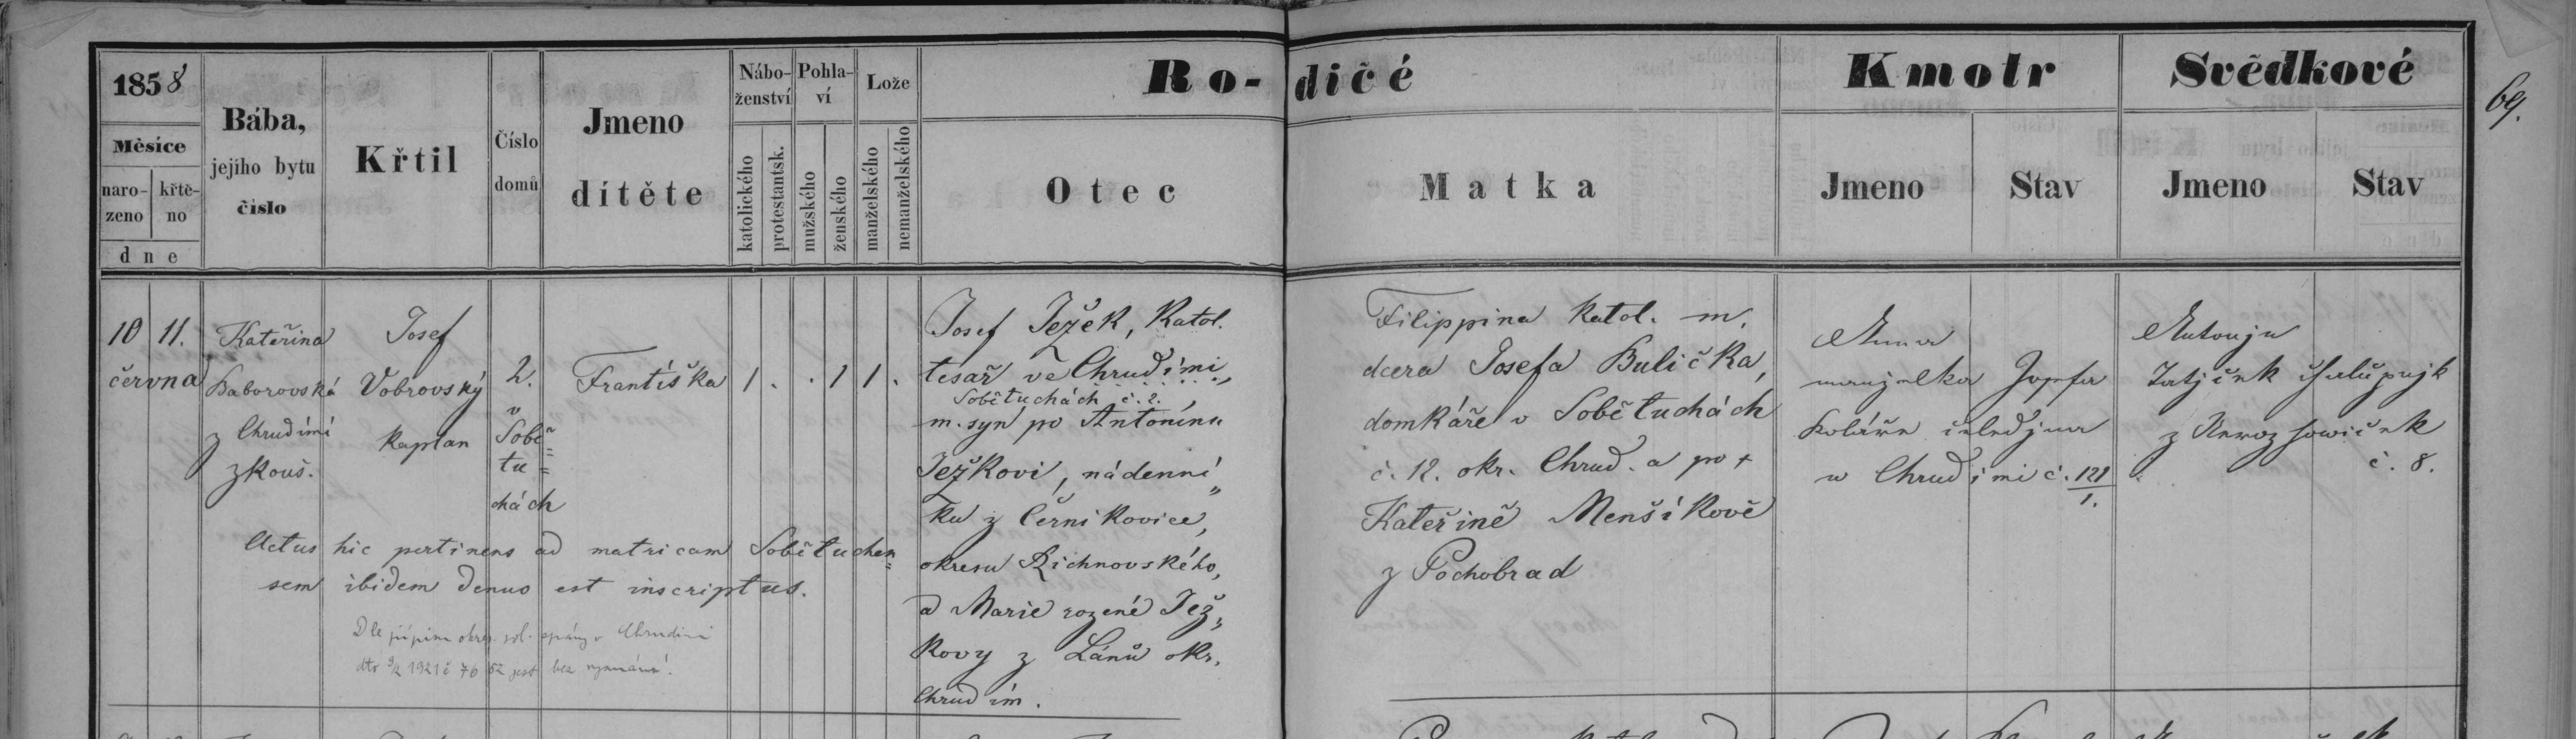 1858
Měsíce
naro-
zeno
křtě-
no
dne
Bába,
jejího bytu
číslo
Křtil
Číslo
domů
Jmeno
dítěte
Nábo-
ženství
katolického
protestantsk.
Pohla-
ví
mužského
ženského
Lože
manželského
nemanželského
Ro- dičé
Otec
Matka
Kmotr
Jmeno
Stav
Svědkové
Jmeno
Stav
69.
10 11.
června
Kateřina
Baborovská
z Chrudimi
zkouš.
Josef
Vobrovský
kaplan
2.
v
Sobě=
tu=
chách
Františka
1 . . 1 1 .
Josef Ježek, Katol.
tesař ve Chrudimi,
Sobětuchách č. 2.,
m. syn po Antonínu
Ježkovi, nádenní„
ku z Černikovice,
okresu Richnovského,
a Marie rozené Jež„
kovy z Lánů okr.
Chrudim.
Filippina katol. m.
dcera Josefa Bulička,
domkáře v Sobětuchách
č. 12. okr. Chrud. a po +
Kateřině Menšíkově
z Pochobrad
Anna
manželka Josefa
Koláře čeledjna
w Chrudimi č. 121/1.
Antonjn
č. 8.
Actus hic pertinens ad matricam Sobětuchen=
sem ibidem denuo est inscriptus.
Dle přípisu okres. pol. správy v Chrudimi
dto 9/2 1921 č 7662 jest bez vyznání!